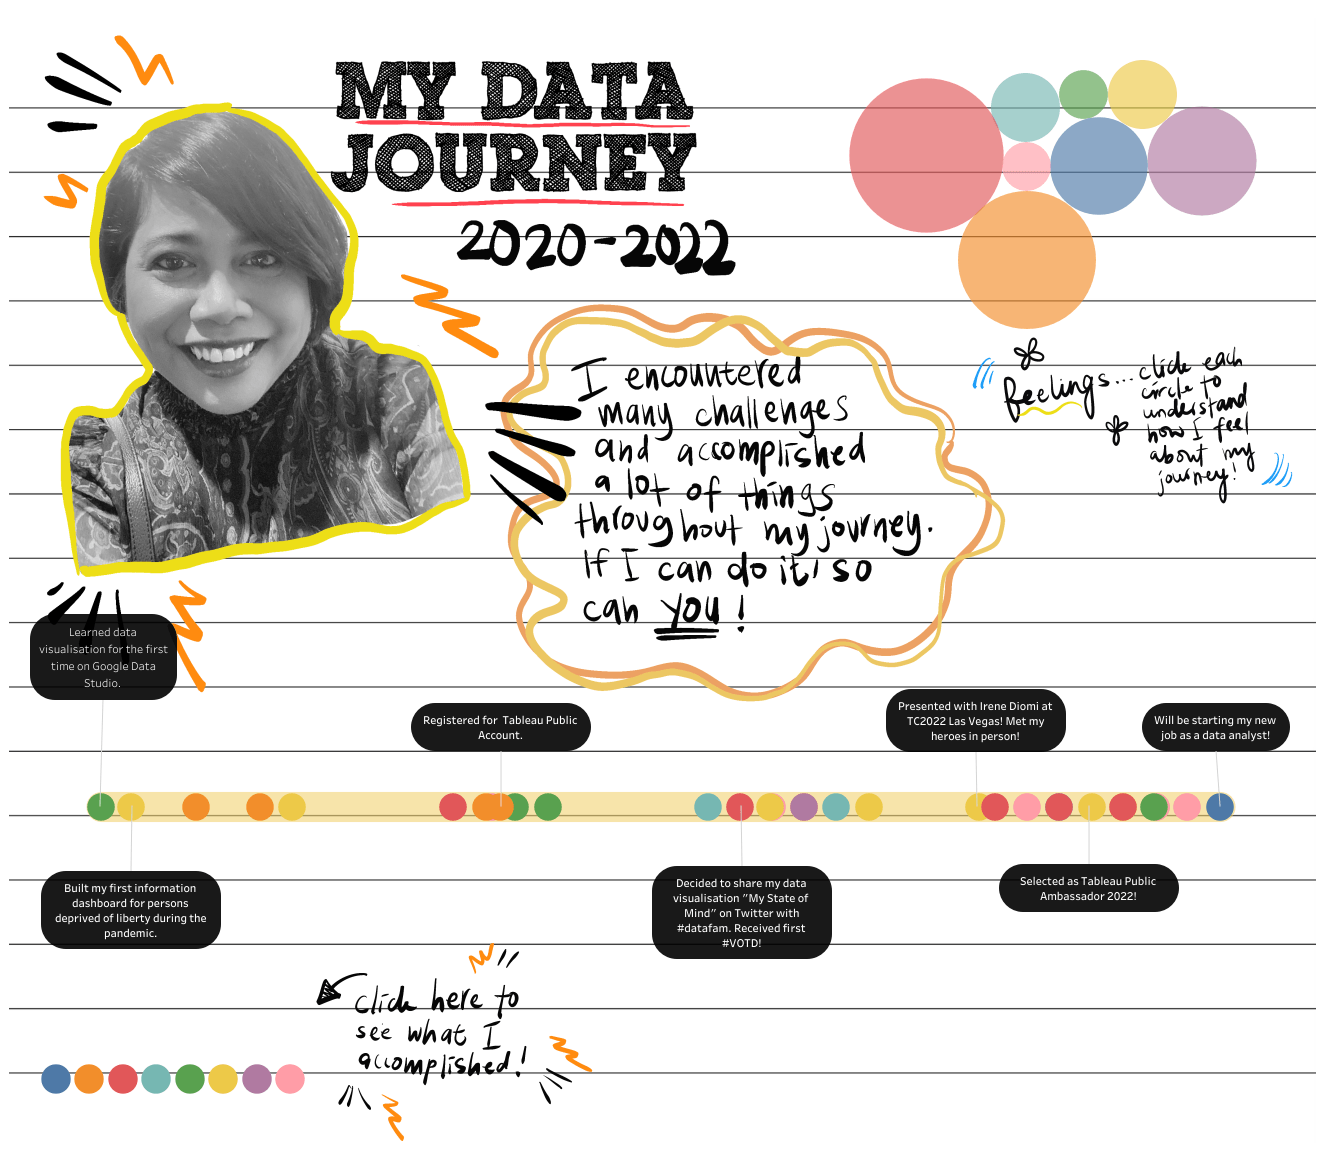 MY DATA
JOURNEY
2020-2022
I encountered
many challenges
and accomplished
a lot of things
throughout my journey.
If I can do it, so
can you!
feelings...
click each
circle to
understand
how I feel
about my
journey!
Learned data
visualisation for the first
time on Google Data
Studio.
Registered for Tableau Public
Account.
Presented with Irene Diomi at
TC2022 Las Vegas! Met my
heroes in person!
Will be starting my new
job as a data analyst!
Built my first information
dashboard for persons
deprived of liberty during the
pandemic.
Decided to share my data
visualisation "My State of
Mind" on Twitter with
#datafam. Received first
#VOTD!
Selected as Tableau Public
Ambassador 2022!
click here to
see what I
accomplished!